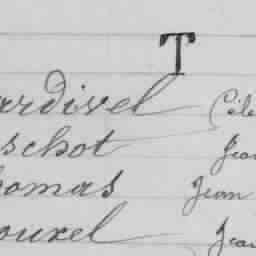 T
ardivel Céle
schot Jean
homas Jean
ouxel Jean